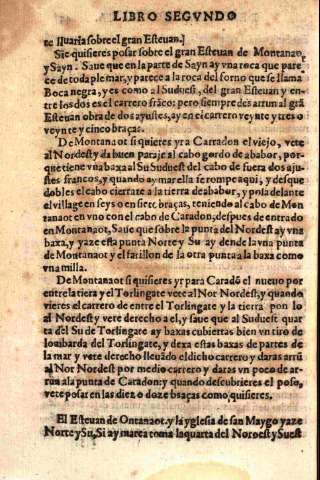 LIBRO SEGVNDO
te lluaria sobre el gran Esteuan.]
Si quieres posar sobre el gran Esteuan de Montanao,
y Sayn. Saue que en la parte de Sayn ay vna roca que pare
ce de toda ple mar, y parece a la roca del forno que se llama
Boca negra, y es como al Sudueste, del gran Esteuan y en-
tre los dos es el carrero frãco: pero siempre des arrum al grã
Esteuan obra de dos ayustes, ay en el carrero veynte y tres o
veynte y cinco braças.
De Montanaot si quieres yr a Carradon el viejo, vete
al Nordest y da buen paraje al cabo gordo de ababor, por-
que tiene vna baxa al Su Suduest del cabo de fuera dos aju-
stes francos, y quando ay mar ella se rompe aqui, y desque
dobles el cabo cierrate a la tierra de ababor, y posa delante
el village en seys o en siete braças, teniendo al cabo de Mon
tanaot en vno con el cabo de Caradon, despues de entrado
en Montanaot, Saue que sobre la punta del Nordest ay vna
baxa, y yaze esta punta Norte y Su ay dende la vna punta
de Montanaot y el farillon de la otra punta a la baxa como
vna milla.
De Montanaot si quieres yr para Caradõ el nueuo por
entre la tiera y el Torlingate vete al Nor Nordest, y quando
vieres el carrero de entre el Torlingate y la tierra pon lo
al Nordest y vete derecho a el, y saue que al Suduest quar
ta del Su de Torlingate ay baxas cubiertas bien vn tiro de
lombarda del Torlingate, y dexa estas baxas de partes de
la mar y vete derecho lleuãdo el dicho carrero y daras arrũ
al Nor Nordest por medio carrero y daras vn poco de ar-
rũs a la punta de Caradon: y quando descubrieres el poso,
vete posar en las diez o doze braças como quisieres.
El Esteuan de Ontanaot. y la yglesia de san Maygo yaze
Norte y Su, Si ay marea toma la quarta del Noroest y Suest